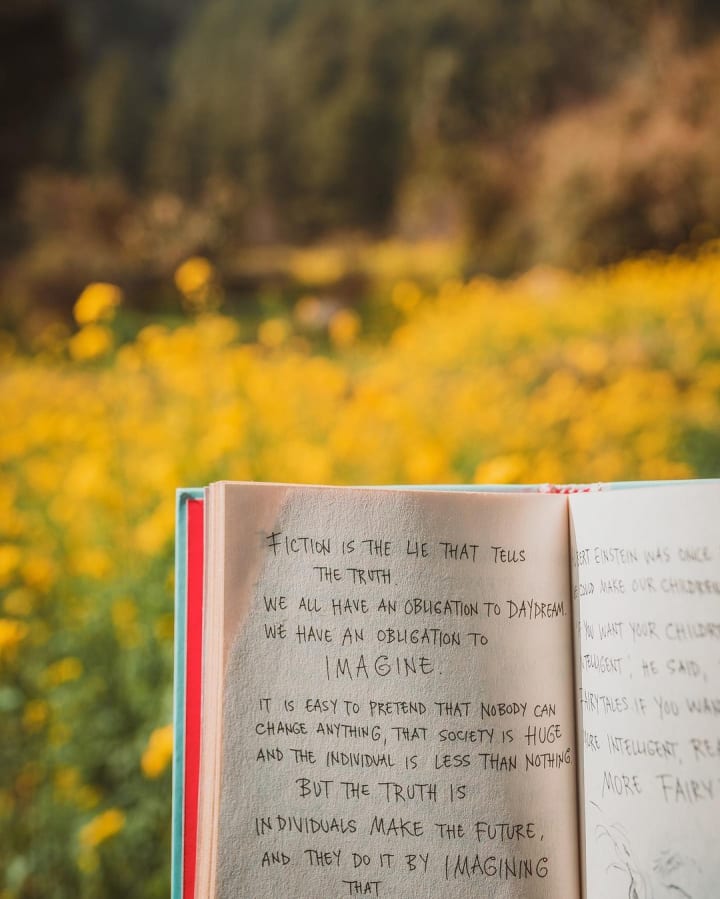 FICTION IS THE LIE THAT TELLS
THE TRUTH.
WE ALL HAVE AN OBLIGATION TO DAYDREAM.
WE HAVE AN OBLIGATION TO
IMAGINE.
IT IS EASY TO PRETEND THAT NOBODY CAN
CHANGE ANYTHING, THAT SOCIETY IS HUGE
AND THE INDIVIDUAL IS LESS THAN NOTHING
BUT THE TRUTH IS
INDIVIDUALS MAKE THE FUTURE,
AND THEY DO IT BY IMAGINING
THAT
EINSTEIN WAS ONCE
MAKE OUR CHILDREN
YOU WANT YOUR
HE SAID,
FAIRYTALES. IF YOU
INTELLIGENT,
MORE FAIRY